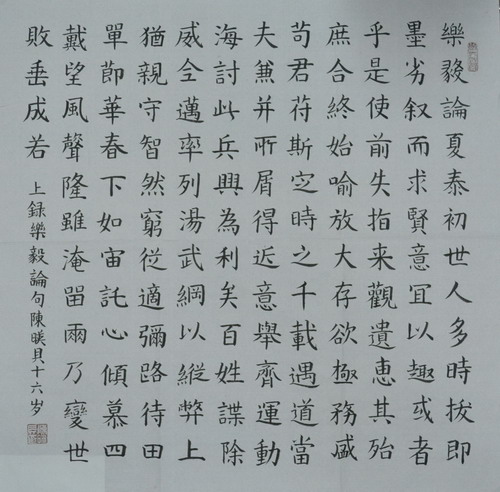 樂毅論夏泰初世人多時拔即
墨劣叙而求賢意冝以趣或者
乎是使前失指来觀遺惠其殆
庶合終始喻放大存欲極務盛
苟君苻斯定時之千載遇道當
夫兼并所屑得近意舉齊運動
海討此兵興為利矣百姓諜除
威全邁率列湯武綱以縱弊上
猶親守智然窮從適彌路待田
單節華春下如宙託心傾慕四
戴望風聲隆雖淹畱雨乃變世
敗垂成若
上録樂毅論句陳十六岁